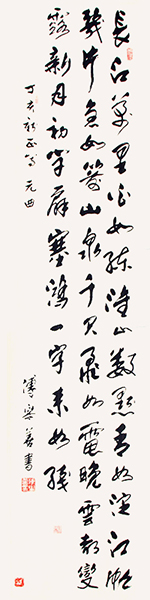 長江萬里白如練淮山數點青如淀江帆
幾片急如箭山泉千尺飛如電晚雲都變
露新月初學扇塞鴻一字來如線
丁亥 元曲
樂善書